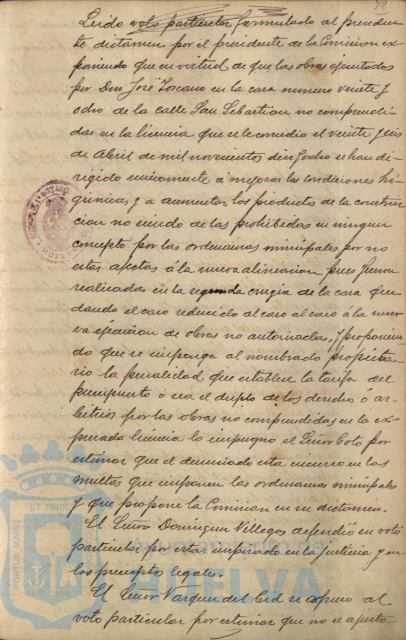 Leido voto particular formulado al preceden
te dictamen por el presidente de la Comision ex
poniendo que en virtud de que las obras ejecutadas
por Don José Toscano en la casa numero veinte y
ocho de la calle San Sebastian no comprendi
das en la licencia que se le concedio el veinte y seis
de Abril de mil novecientos diez y ocho se han di
rigido unicamente a mejorar las condiciones hi
gienicas y a aumentar los productos de la construc
cion no siendo de las prohibidas en ningun
concepto por las ordenanzas municipales por no
estar afectas á la nueva alineacion pues fueron
realizadas en la segunda crugia de la casa que
dando el caso reducido al caso al caso á la nue
va ejecucion de obras no autorizadas, y proponien
do que se imponga al nombrado propieta
rio la penalidad que establece la tarifa del
presupuesto ó sea el duplo de los derechos ó ar
bitrios por las obras no comprendidas en la ex
presada licencia lo impugno el Señor Coto por
estimar que el denunciado esta incurso en las
multas que imponen las ordenanzas municipales
y que propone la Comision en su dictamen.
El Señor Dominguez Villegas defendió su voto
particular por estar inspirado en la Justicia y en
los preceptos legales.
El Señor Vazquez del Cid se opuso al
voto particular por estimar que no se ajusta
PORTUS MARIS
ET TERRÆ
HUELVA